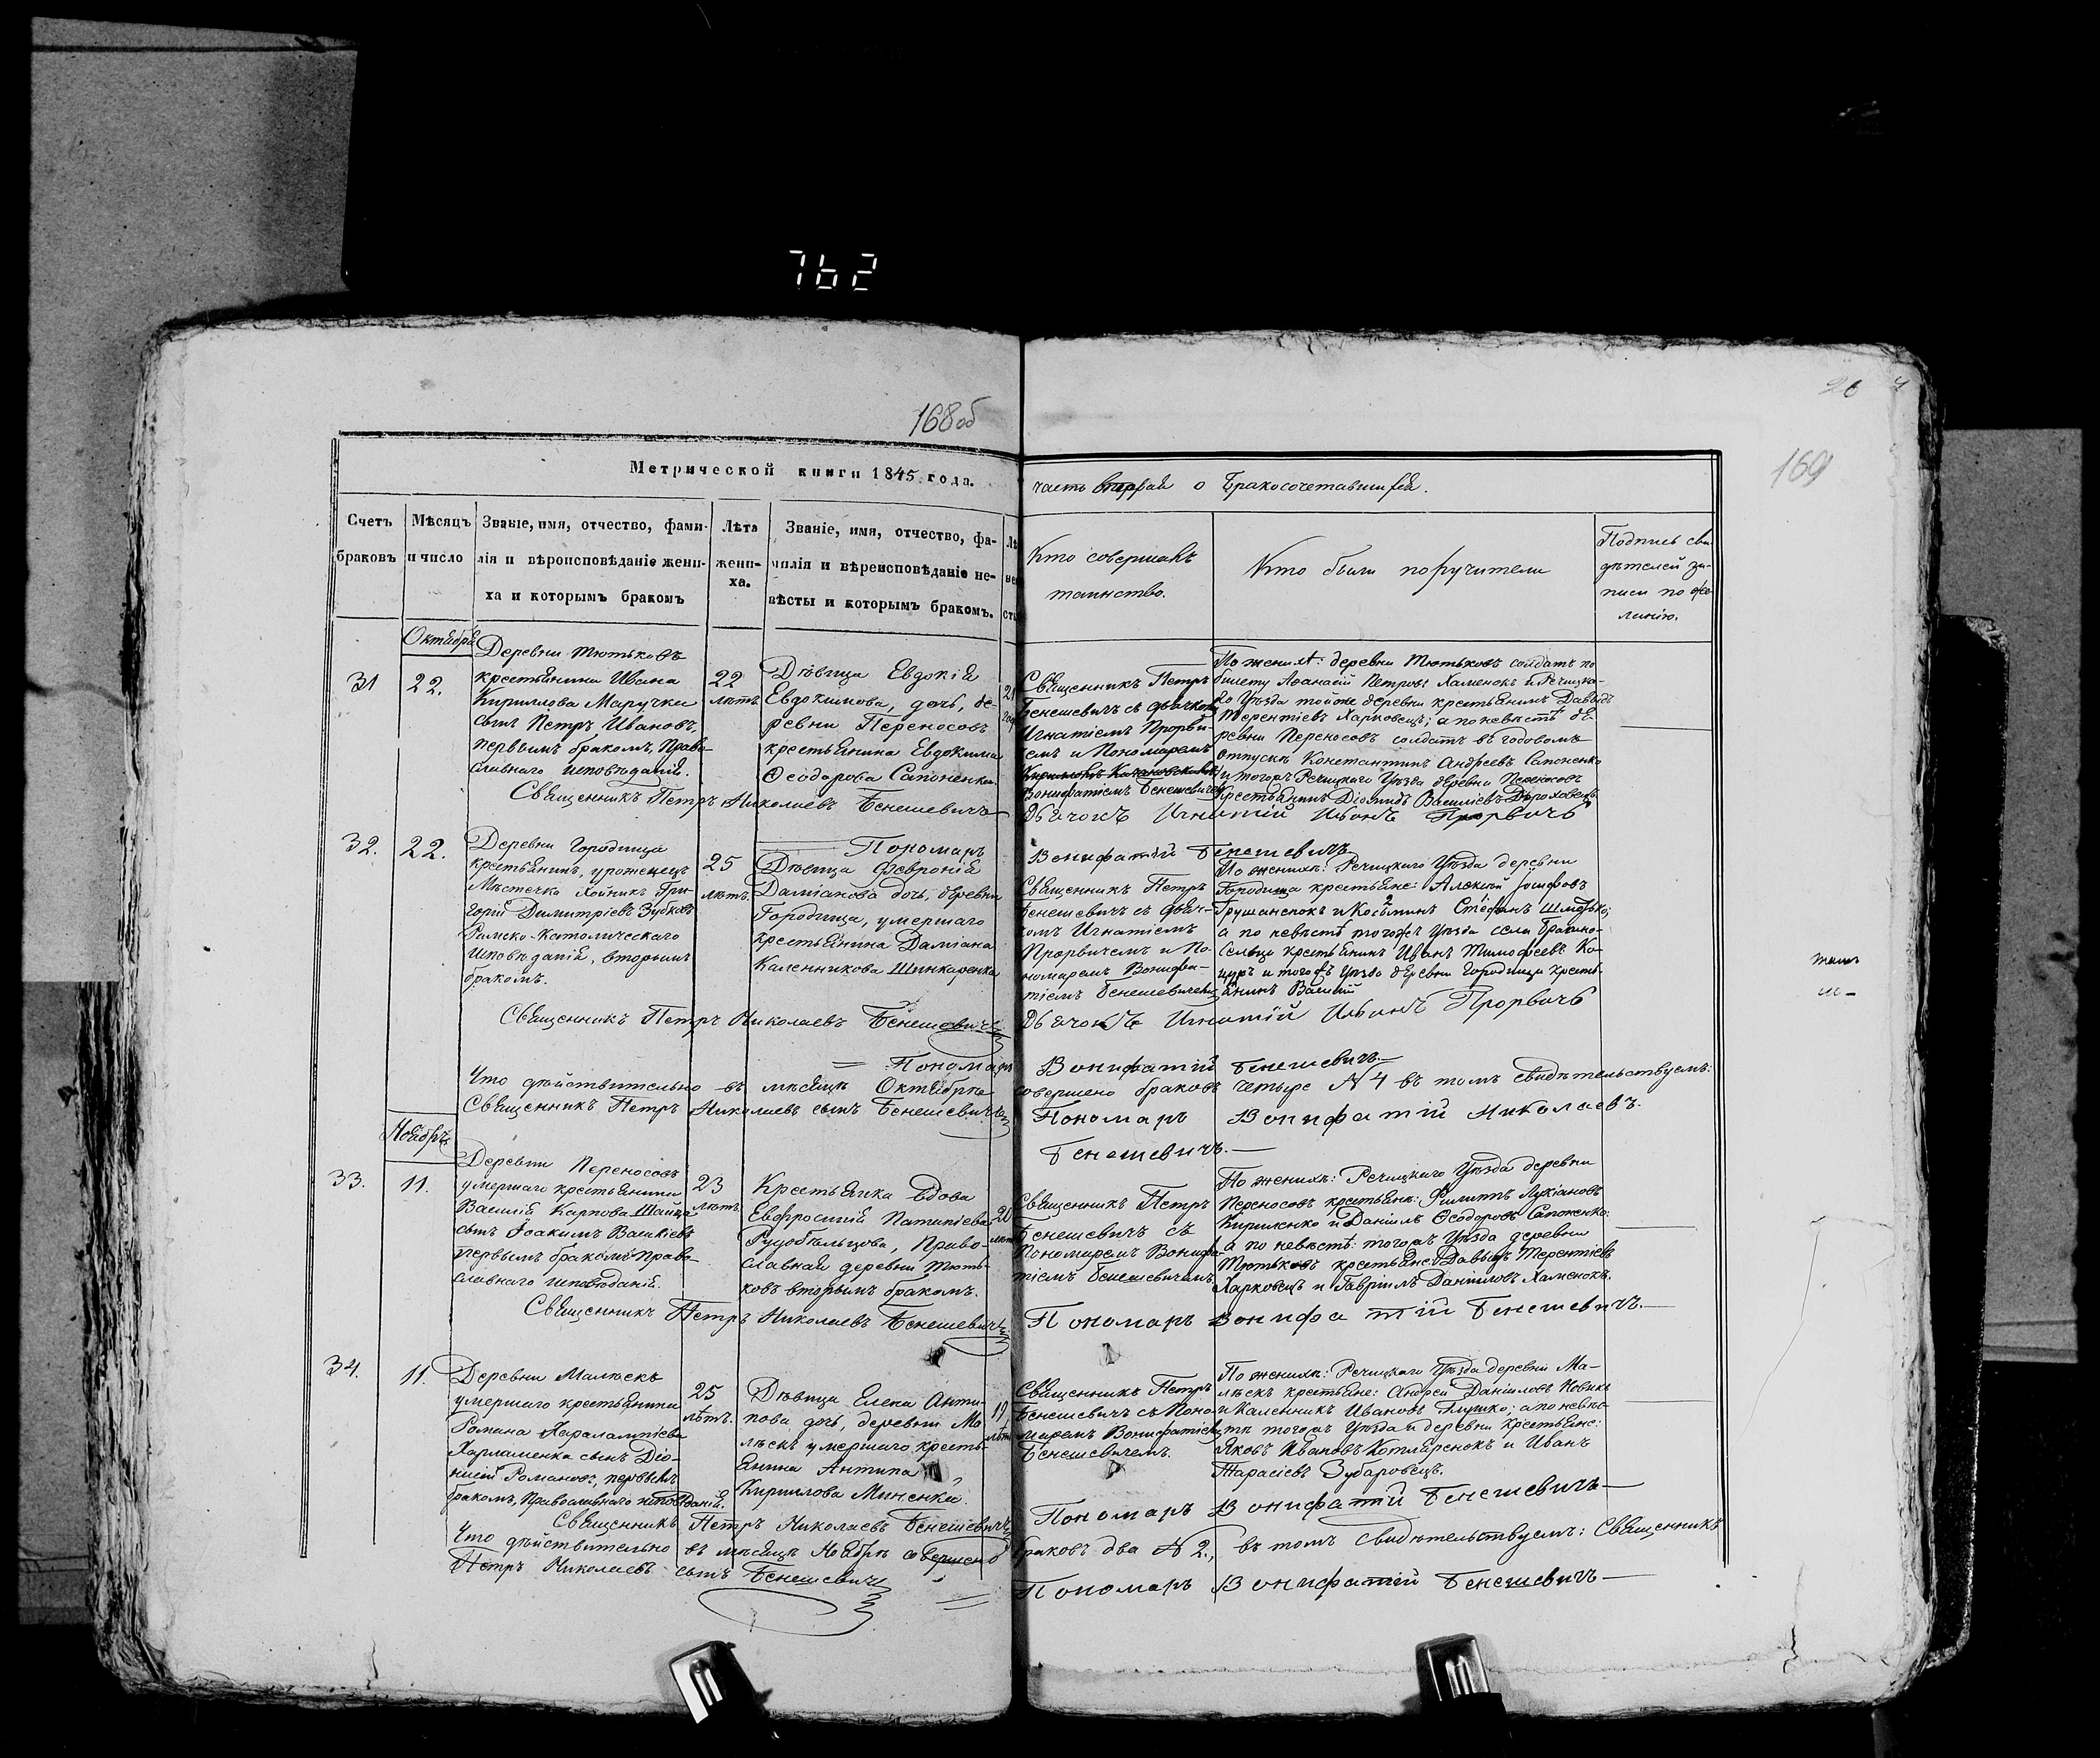 762
168об
26 4
169
Метрической книги 1845 года.
часть вторая о бракосочетавшихся.
Счетъ браковъ
Мѣсяцъ и число
Званіе, имя, отчество, фами-
лія и вѣроисповѣданіе жени-
ха и которымъ бракомъ
Лѣта
жени-
ха.
Званіе, имя, отчество, фа-
милія и вѣреисповѣданіе не-
вѣсты и которымъ бракомъ.
Кто совершалъ
таинство.
Кто были поручители
Подпись сви-
дѣтелей за-
писи по же-
ланію.
Октября
31
22.
Деревни Тютьковъ
крестьянина Ивана
Кириллова Маручки
сынъ Петръ Ивановъ,
первымъ бракомъ, Право-
славнаго исповѣданія.
22
лѣтъ
Дѣвица Евдокія
Евдокимова, дочь, де-
ревни Переносовъ
крестьянина Евдокима
Ѳеодорова Сапоненка
21
год
Священникъ Петръ
Бенешевичъ съ дьячкомъ
Игнатіемъ Прорви-
чемъ и Пономаремъ
Вонифатіемъ Бенешевичемъ
По женихѣ: деревни Тютьковъ солдатъ по
билету Аѳанасій Петровъ Хаменокъ и Речицка-
го Уѣзда тойже деревни крестьянинъ Давыдъ
Терентіевъ Харковецъ; а по невѣстѣ де-
ревни Переносовъ солдатъ въ годовомъ
отпускѣ Константинъ Андреевъ Сапоненко
и тогожъ Речицкаго Уѣзда деревни Переносовъ
крестьянинъ Діомидъ Василіевъ Дороховецъ
Священникъ Петръ Николаевъ Бенешевичъ
Дьячокъ Игнатій Ивановъ Прорвичь
Пономарь Вонифатій Бенешевичъ
32.
22.
Деревни Городища
крестьянинъ, уроженецъ
Мѣстечка Хойникъ Гри-
горій Димитріевъ Зубковъ
Римско-Католическаго
исповѣданія, вторымъ
бракомъ.
25
лѣтъ.
Дѣвица Февронія
Даміанова дочь, деревни
Городища, умершаго
крестьянина Даміана
Каленникова Шинкаренка
Священникъ Петръ
Бенешевичъ съ дьяч-
комъ Игнатіемъ
Прорвичемъ и По-
номаремъ Вонифа-
тіемъ Бенешевичемъ
По женихѣ: Речицкаго Уѣзда деревни
Городища крестьяне: Алексѣй Іосифовъ
Грушанскокъ и Косьминъ Стефанъ Шмотько;
а по невѣстѣ тогожъ Уѣзда села Брагино-
Сельца крестьянинъ Иванъ Тимофеевъ Ко-
цуръ и тогожъ Уѣзда деревни Городища кресть-
янинъ Василій
Священникъ Петръ Николаевъ Бенешевичъ
Дьячокъ Игнатій Ивановъ Прорвичь
Пономарь Вонифатій Бенешевичъ.
Что дѣйствительно въ мѣсяцѣ Октябрѣ совершено браковъ четыре № 4 въ томъ свидѣтельствуемъ:
Священникъ Петръ Николаевъ сынъ Бенешевичъ Пономарь Вонифатій Николаевъ
Бенешевичъ.
Ноябрь
33.
11.
Деревни Переносовъ
умершаго крестьянина
Василія Карпова Шайца
сынъ Іоакимъ Василіевъ
первымъ бракомъ Право-
славнаго исповѣданія.
23
лѣтъ
Крестьянка вдова
Евфросинія Патапіева
Рудобѣльцова, Право-
славная деревни Тють-
ковъ вторымъ бракомъ.
20
лѣтъ
Священникъ Петръ
Бенешевичъ съ
Пономаремъ Вонифа-
тіемъ Бенешевичемъ
По женихѣ: Речицкаго Уѣзда деревни
Переносовъ крестьяне: Филиппъ Лукіановъ
Кириленко и Даніилъ Ѳеодоровъ Сапоненко:
а по невѣстѣ: тогожъ Уѣзда деревни
Тютьковъ крестьяне Давыдъ Терентіевъ
Харковецъ и Гавріилъ Даніиловъ Хаменокъ.
Священникъ Петръ Николаевъ Бенешевичъ
Пономарь Вонифатій Бенешевичъ.
34.
11.
Деревни Малѣекъ
умершаго крестьянина
Романа Харалампіева
Харламенка сынъ Діо-
нисій Романовъ, первымъ
бракомъ, Православнаго исповѣданія.
25
лѣтъ.
Дѣвица Елена Анти-
пова дочь, деревни Ма-
лѣекъ умершаго кресть-
янина Антипа
Кириллова Миненки.
19
лѣтъ
Священникъ Петръ
Бенешевичъ съ Поно-
маремъ Вонифатіемъ
Бенешевичемъ.
По женихѣ: Речицкаго Уѣзда деревни Ма-
лѣекъ крестьяне: Андрей Даніиловъ Новикъ
и Каленникъ Ивановъ Глушко; а по невѣс-
тѣ тогожъ Уѣзда и деревни крестьяне:
Яковъ Ивановъ Котляренокъ и Иванъ
Тарасіевъ Зубаровецъ.
Священникъ Петръ Николаевъ Бенешевичъ
Пономарь Вонифатій Бенешевичъ
Что дѣйствительно въ мѣсяцѣ Ноябрѣ совершено браковъ два № 2, въ томъ свидѣтельствуемъ: Священникъ
Петръ Николаевъ сынъ Бенешевичъ
Пономарь Вонифатій Бенешевичъ